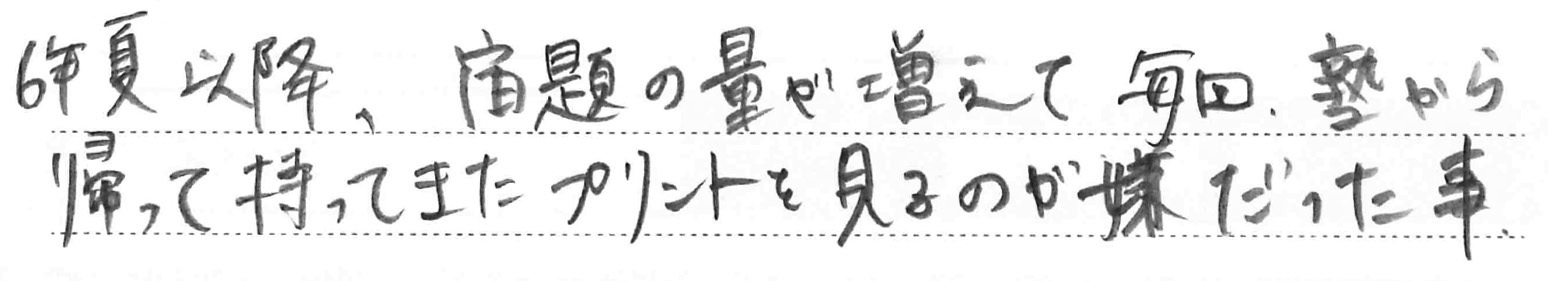 6年夏以降、宿題の量が増えて毎回、塾から
帰って持ってきたプリントを見るのが嫌だった事。